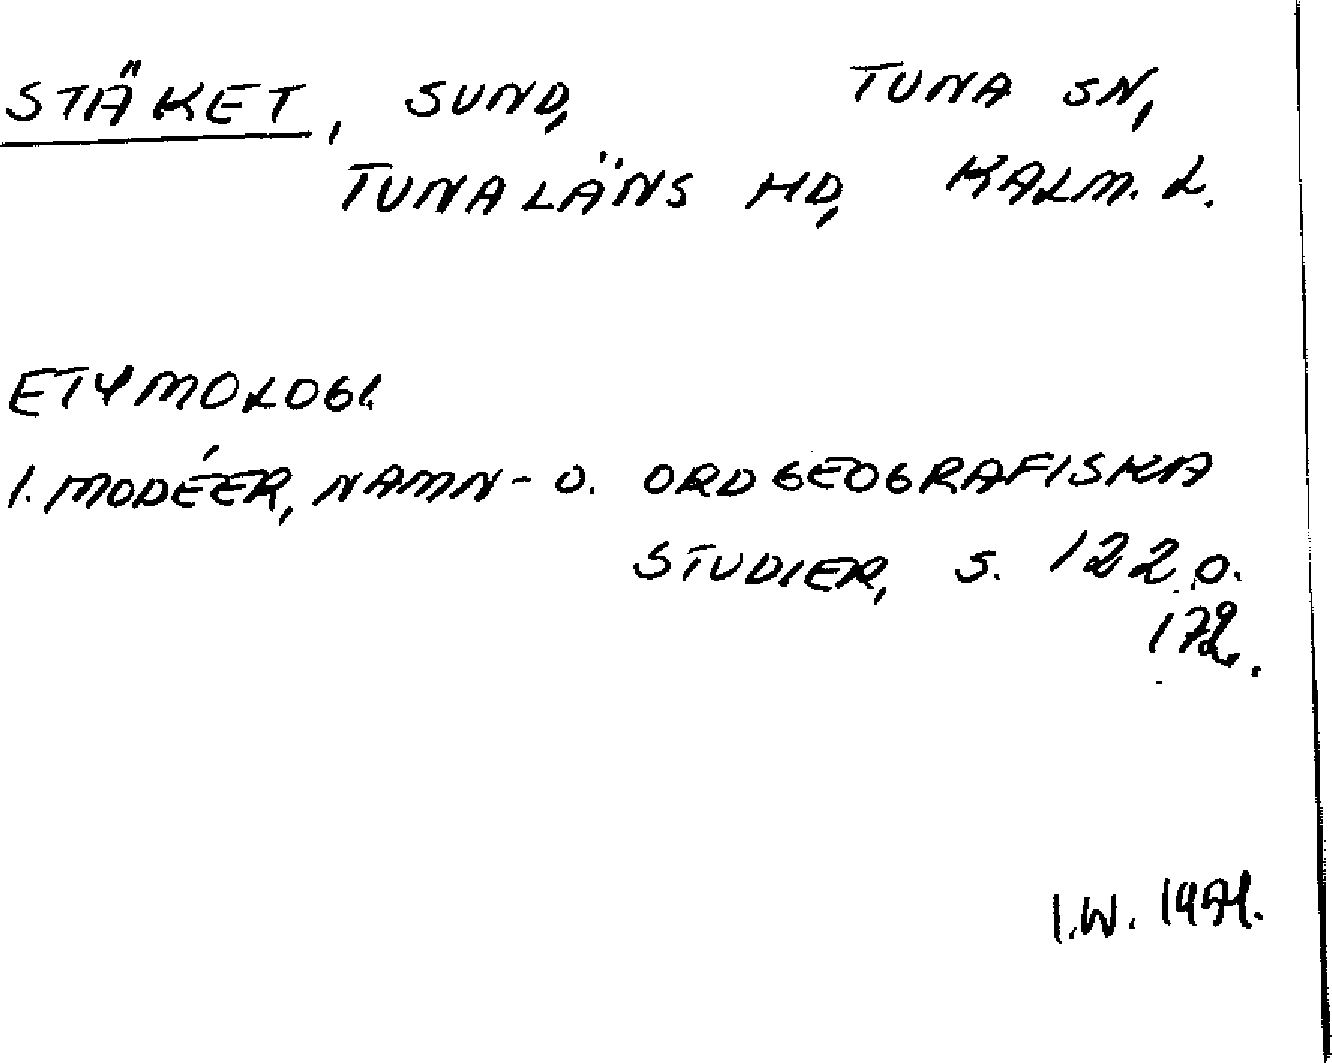 STÄKET, SUND, TUNA SN,
TUNALÄNS HD, KALM. L.
ETYMOLOGI
I. MODÉER, NAMN- O. ORDGEOGRAFISKA
STUDIER, S. 122 O.
172.
I.W.